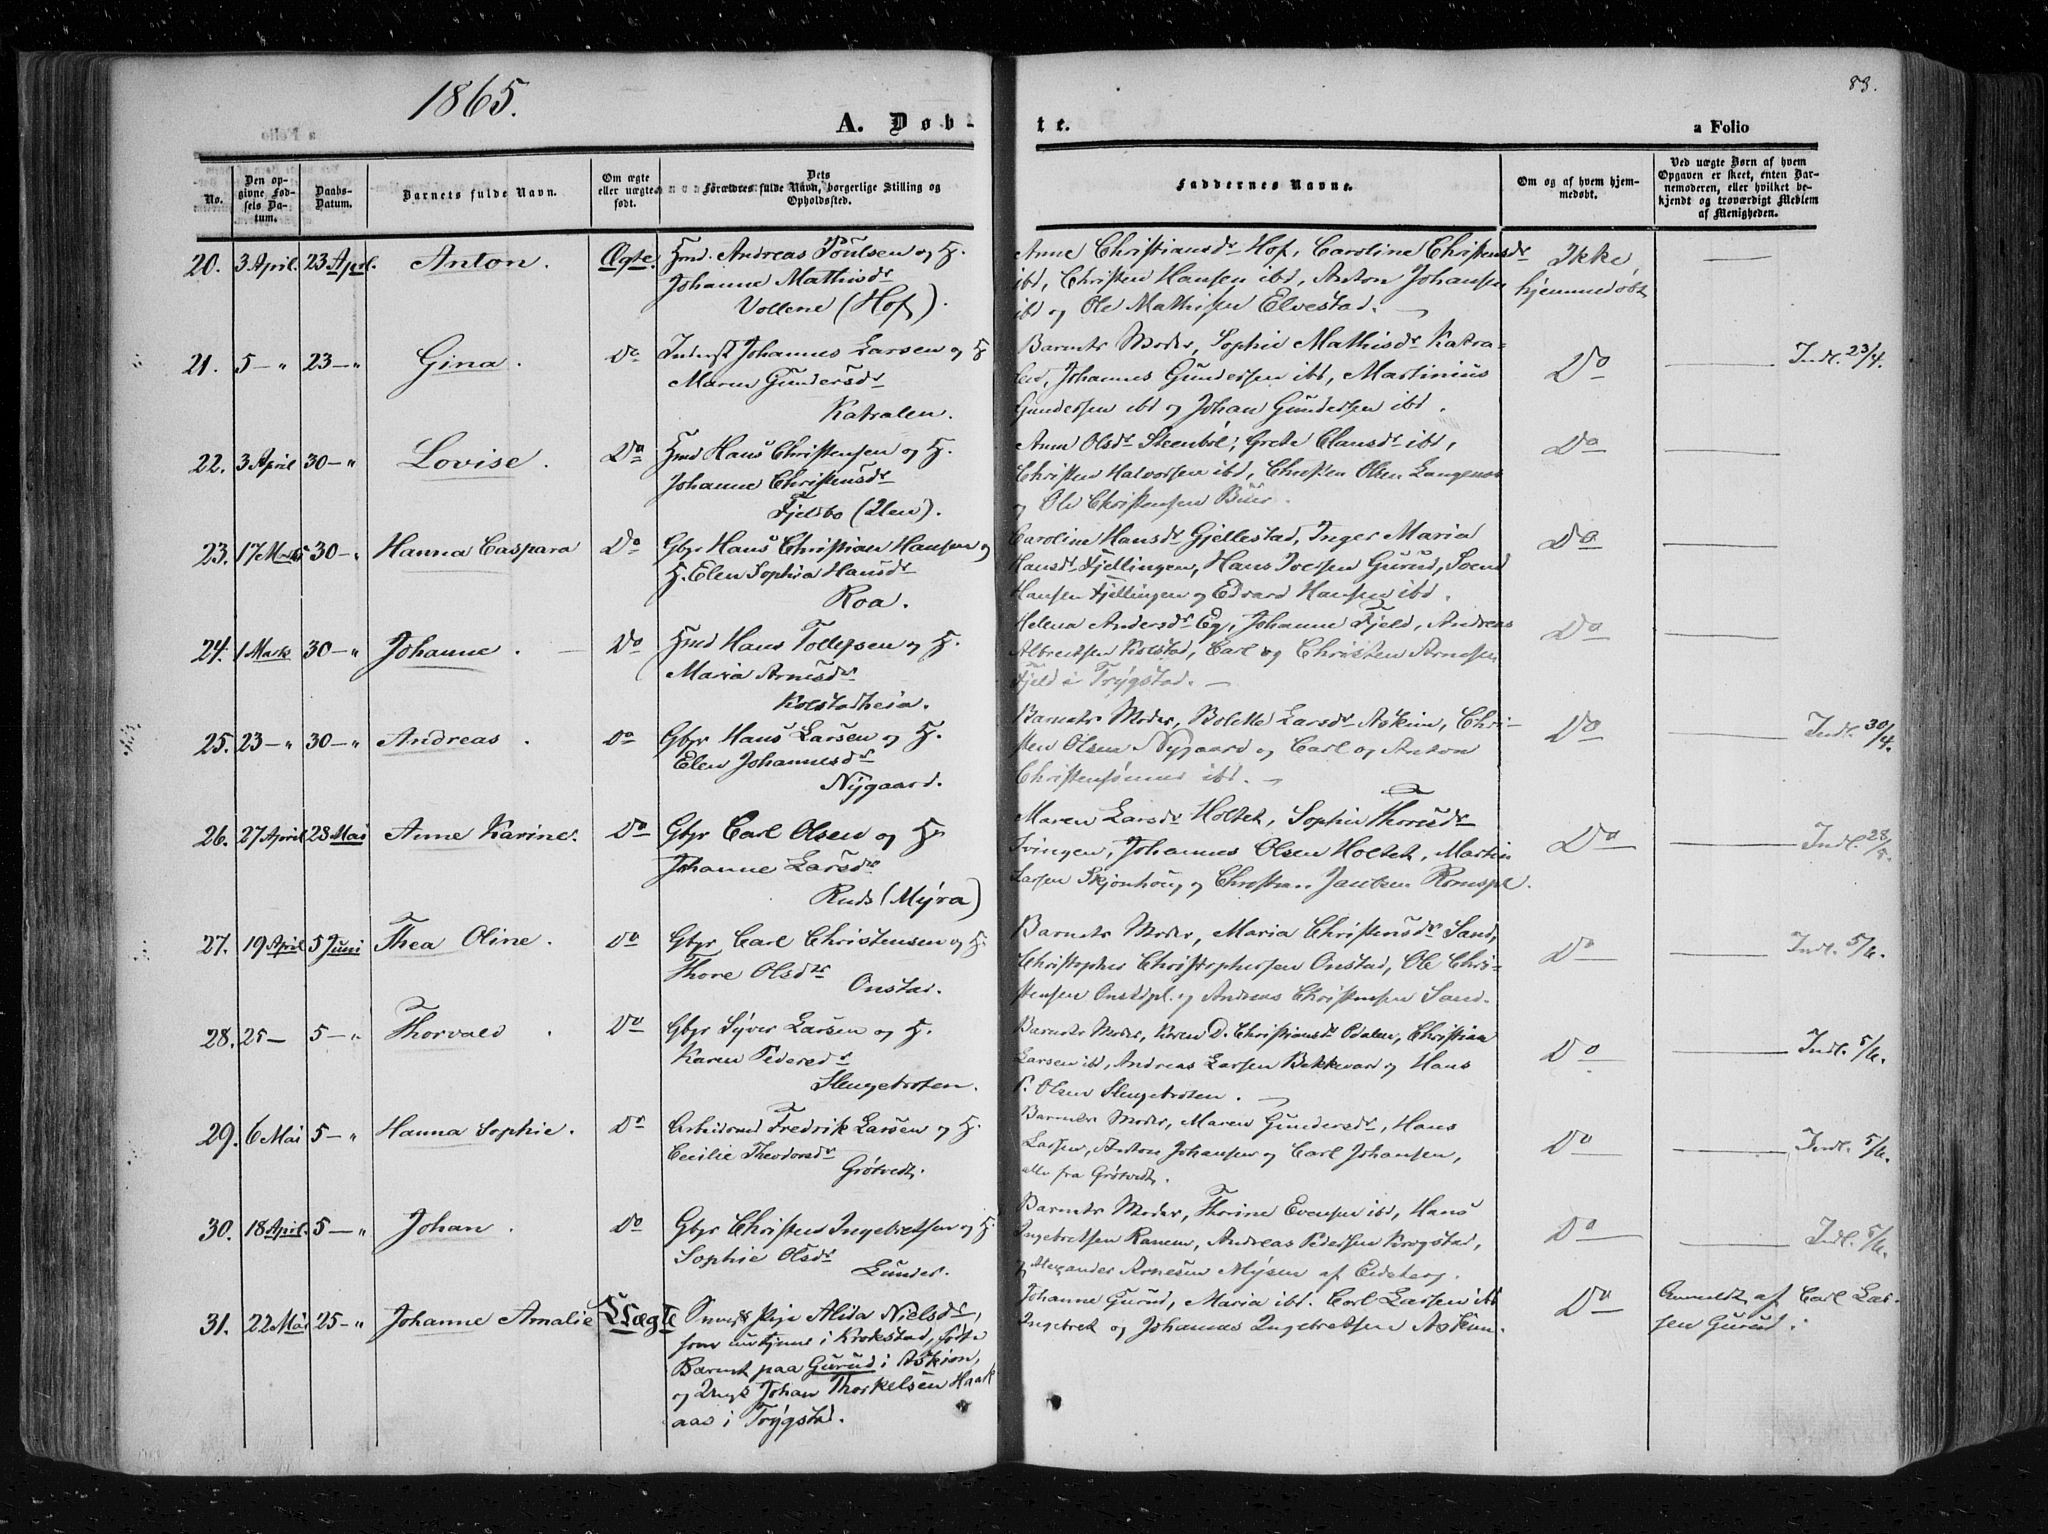 1865.
83.
A. Døb-
te.
a Folio
No.
Den op-
givne Fød-
sels Da-
tum.
Daabs-
Datum.
Barnets fulde Navn.
Om ægte
eller uægte
født.
Dets
Forældres fulde Navn, borgerlige Stilling og
Opholdssted.
Faddernes Navne.
Om og af hvem hjem-
medøbt.
Ved uægte Børn af hvem
Opgaven er skeet, enten Bar-
nemoderen, eller hvilket be-
kjendt og troværdigt Medlem
af Menigheden.
20. 3 April. 23 April. Anton. Ægte. Hmd. Andreas Poulsen og H.
Johanne Mathisdr
Vollene (Hof).
Anne Christiansdr Hof, Caroline Christensdr
ibd, Christen Hansen ibd, Anton Johansen
ibd og Ole Mathisen Elvestad.
Ikke
hjemmedøbt
21. 5 - " 23 - " Gina. Do Inderst Johannes Larsen og H
Maren Gundersdr
Katralen.
Barnets Moder, Sophie Mathisdr Katra-
len, Johannes Gundersen ibd, Martinius
Gundersen ibd og Johan Gundersen ibd.
Do
Indl. 23/4.
22. 3 April 30 - " Lovise. Do Hmd Hans Christensen og H.
Johanne Christensdr
Fjelsbo (Ulen).
Anne Olsdr Steenbøl; Grete Clausdr ibd,
Christen Halvorsen ibd, Christen Olsen Langenes
og Ole Christensen Buer.
Do
23. 17 Marts 30 - " Hanna Caspara Do Gbr Hans Christian Hansen og
H. Elen Sophia Hansdr
Roa.
Caroline Hansdr Gjellestad, Inger Maria
Hansdr Fjellingen, Hans Joelsen Gurud, Svend
Hansen Fjellingen og Edvard Hansen ibd.
Do
24. 1 Mark 30 - " Johanne. Do Hmd Hans Tollefsen og H.
Maria Arnesdr
Kolstadheia.
Helena Andersdr Eg, Johanne Fjeld, Andreas
Albretsen Kolstad, Carl og Christen Arnesen
Fjeld i Trygstad.
Do
25. 23 - " 30 - " Andreas. Do Gbr Hans Larsen og H.
Elen Johannesdr
Nygaard.
Barnets Moder, Bolette Larsdr Askim, Chri-
sten Olsen Nygaard og Carl og Anton
Christensønner ibd.
Do
Indl. 30/4.
26. 27 April 28 Mai Anne Karine. Do Gbr Carl Olsen og H.
Johanne Larsdr
Ruds (Myra)
Maren Larsdr Holtet, Sophie Thoresdr
Tvingen, Johannes Olsen Holtet, Martin
Larsen Skjønhoug og Christian Jansen Romspl.
Do
Indl. 28/5.
27. 19 April 5 Juni Thea Oline. Do Gbr Carl Christensen og H.
Thore Olsdr
Onstad.
Barnets Moder, Maria Christensdr Sand,
Christopher Christophersen Onstad, Ole Chri-
stensen Onstdpl. og Andreas Christensen Sand.
Do
Indl. 5/6.
28. 25 - 5 - " Thorvald. Do Gbr Syver Larsen og H.
Karen Pedersdr
Slengebroten.
Barnets Moder, Karen D. Christiansdr Odalen, Christian
Larsen ibd, Andreas Larsen Bekkevar og Hans
P. Olsen Slengebroten.
Do
Indl. 5/6.
29. 6 Mai 5 - " Hanna Sophie. Do Arbeidsmd Fredrik Larsen og H.
Cecilie Theodorsdr
Grøtvedt.
Barnets Moder, Maren Gundersdr, Hans
Larsen, Anton Johansen og Carl Johansen,
alle fra Grøtvedt.
Do
Indl. 5/6.
30. 18 April. 5 - " Johan. Do Gbr Christen Ingebretsen og H.
Sophie Olsdr
Lunder.
Barnets Moder, Thorine Evensen ibd, Hans
Ingebretsen Ranem, Andreas Pedersen Krogstad,
og Alexander Arnesen Mysen af Eidsberg.
Do
Indl. 5/6.
31. 22 Mai 25 - " Johanne Amalie Uægte Pige Alida Nielsdr,
som i Krokstad, fødte
Barnet paa Gurud i Askim,
og Ungk Johan Thorkelsen Haak
aas i Trygstad.
Johanne Gurud, Maria ibd. Carl Larsen ibd
Ingebret og Johannes Ingebretsen Askim.
Do
Anmeldt af Carl Lar-
sen Gurud.